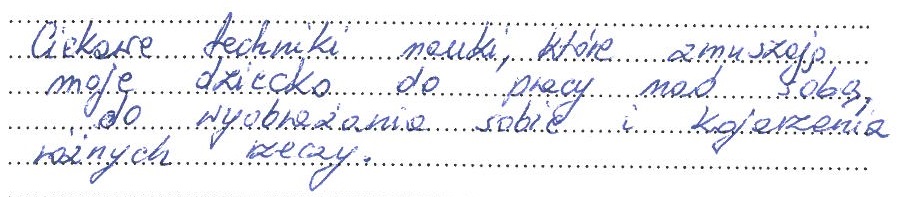 Ciekawe techniki nauki, które zmuszają
moje dziecko do pracy nad sobą,
do wyobrażania sobie i kojarzenia
różnych rzeczy.